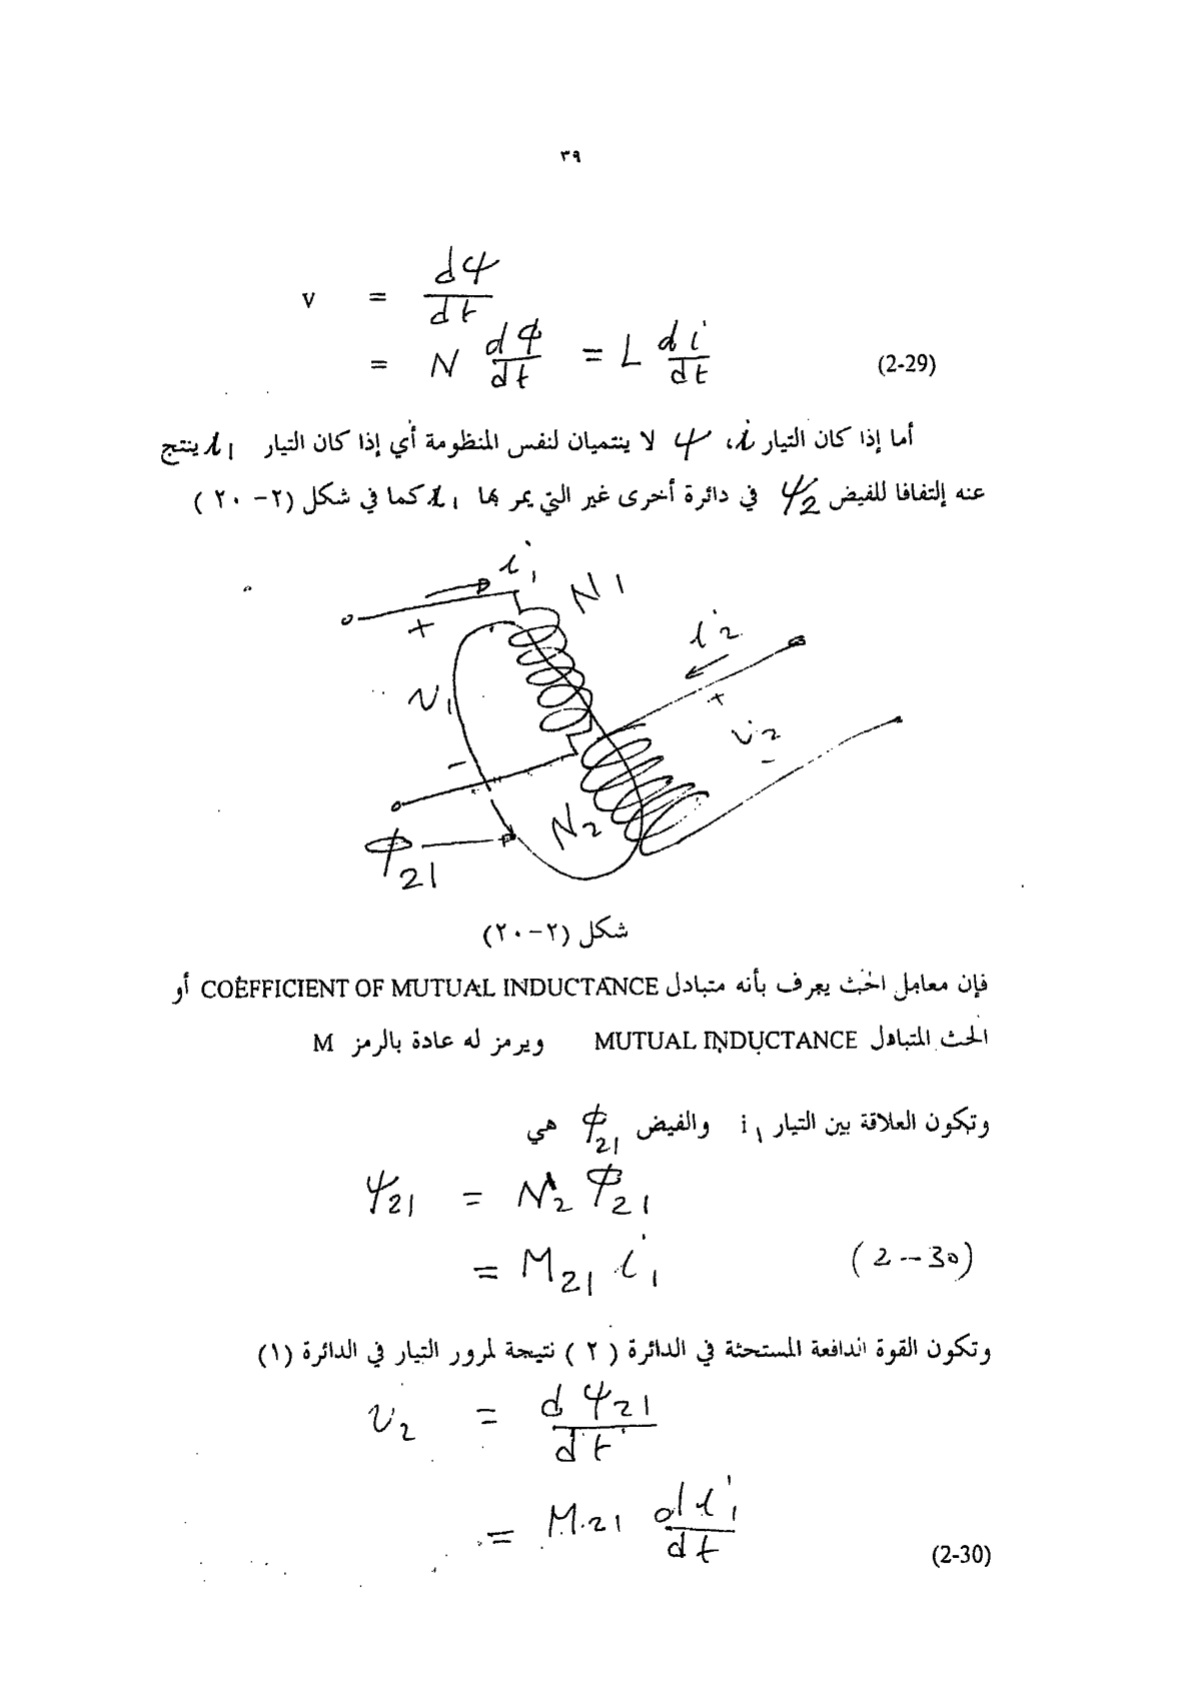 ٣٩
v = dψ/dt
= N dΦ/dt = L di/dt (2-29)
أما إذا كان التيار i، ψ لا ينتميان لنفس المنظومة أي إذا كان التيار i₁ ينتج
عنه إلتفافا للفيض ψ₂ في دائرة أخرى غير التي يمر بها i₁ كما في شكل (٢-٢٠)
i₁
N₁
+
v₁
-
i₂
+
v₂
-
N₂
Φ₂₁
شكل (٢-٢٠)
فإن معامل الحث يعرف بأنه متبادل COEFFICIENT OF MUTUAL INDUCTANCE أو
الحث المتبادل MUTUAL INDUCTANCE ويرمز له عادة بالرمز M
وتكون العلاقة بين التيار i₁ والفيض Φ₂₁ هي
ψ₂₁ = N₂ Φ₂₁
= M₂₁ i₁ (2-30)
وتكون القوة الدافعة المستحثة في الدائرة (٢) نتيجة لمرور التيار في الدائرة (١)
v₂ = dψ₂₁/dt
= M₂₁ di₁/dt (2-30)